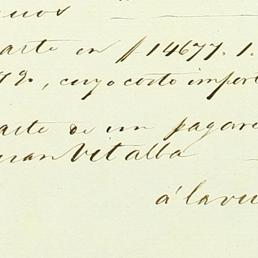 arte en $ 14677.1.
72., cuyo costo import
arte de un pagaré
Juan Vitalba
á la vu